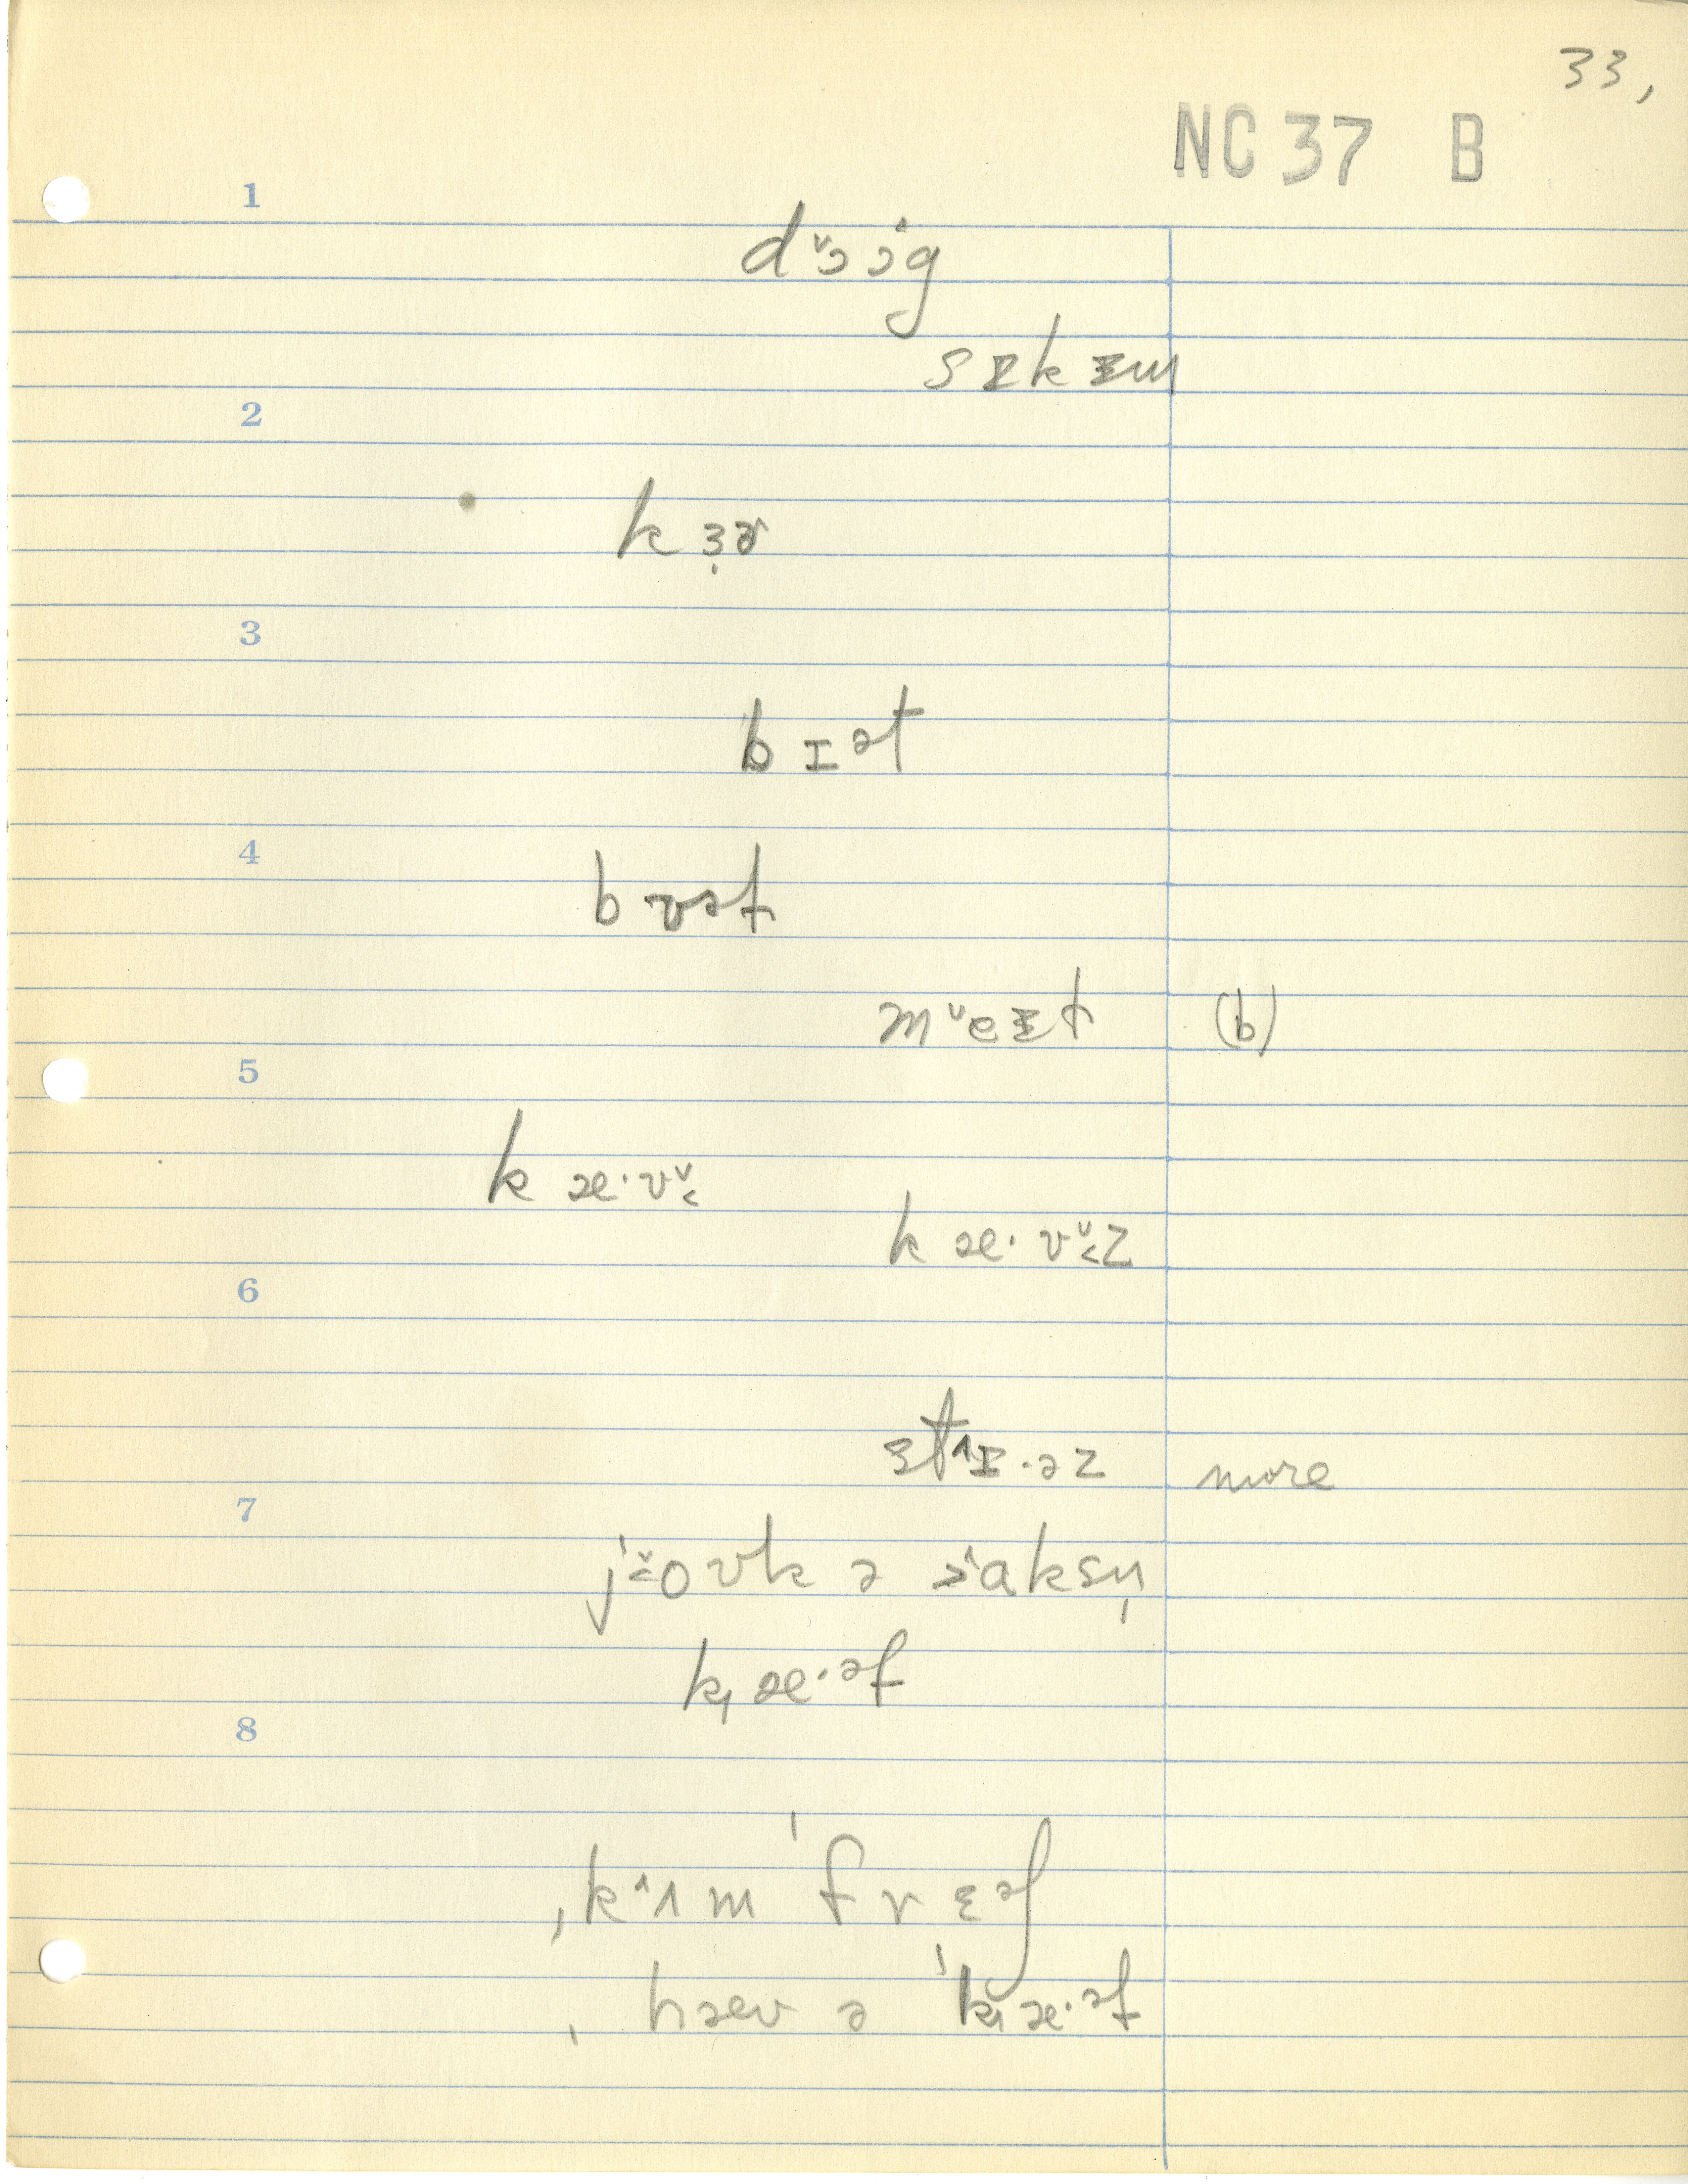 33,
NC 37 B
1
dɔ̌ɔ̂g
sɪkɪm
2
kɜ̣ɚ
3
bɪət
4
bʊət
mᵛeɪt (b)
5
kæ·vᵛ˂
kæ·vᵛ˂z
6
stˆɪ·əz more
7
jˈᵛ˂oʊk ə ɔˆaksn̩
k̟æ·əf
8
ˌkˆʌm ˈfrɛəʃ
ˌhæv ə ˈk̟æ·əf